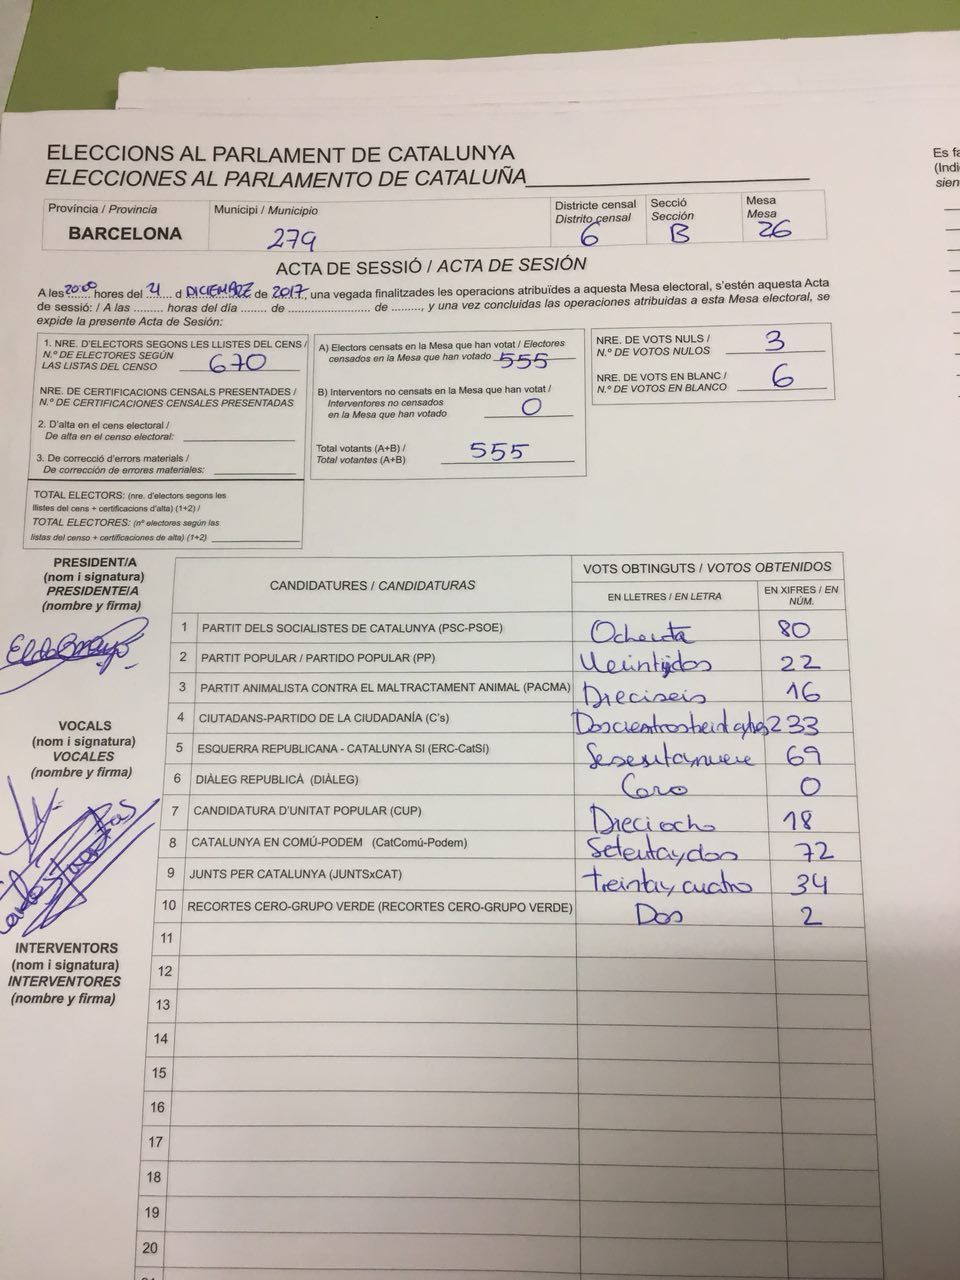 ELECCIONS AL PARLAMENT DE CATALUNYA
ELECCIONES AL PARLAMENTO DE CATALUÑA
Província / Provincia
BARCELONA
Municipi / Municipio
279
Districte censal
Distrito censal
6
Secció
Sección
B
Mesa
Mesa
26
ACTA DE SESSIÓ / ACTA DE SESIÓN
A les 20:00 hores del 21 d DICIEMBRE de 2017, una vegada finalitzades les operacions atribuïdes a aquesta Mesa electoral, s'estén aquesta Acta
de sessió: / A las ......... horas del día ........ de ........................ de ........., y una vez concluidas las operaciones atribuidas a esta Mesa electoral, se
expide la presente Acta de Sesión:
1. NRE. D'ELECTORS SEGONS LES LLISTES DEL CENS /
N.º DE ELECTORES SEGÚN
LAS LISTAS DEL CENSO 670
NRE. DE CERTIFICACIONS CENSALS PRESENTADES /
N.º DE CERTIFICACIONES CENSALES PRESENTADAS
2. D'alta en el cens electoral /
De alta en el censo electoral:
3. De correcció d'errors materials /
De corrección de errores materiales:
TOTAL ELECTORS: (nre. d'electors segons les
llistes del cens + certificacions d'alta) (1+2) /
TOTAL ELECTORES: (nº electores según las
listas del censo + certificaciones de alta) (1+2)
A) Electors censats en la Mesa que han votat / Electores
censados en la Mesa que han votado 555
B) Interventors no censats en la Mesa que han votat /
Interventores no censados
en la Mesa que han votado 0
Total votants (A+B) /
Total votantes (A+B) 555
NRE. DE VOTS NULS /
N.º DE VOTOS NULOS 3
NRE. DE VOTS EN BLANC /
N.º DE VOTOS EN BLANCO 6
Es fa
(Indi
sien
PRESIDENT/A
(nom i signatura)
PRESIDENTE/A
(nombre y firma)
VOCALS
(nom i signatura)
VOCALES
(nombre y firma)
INTERVENTORS
(nom i signatura)
INTERVENTORES
(nombre y firma)
CANDIDATURES / CANDIDATURAS
VOTS OBTINGUTS / VOTOS OBTENIDOS
EN LLETRES / EN LETRA
EN XIFRES / EN
NÚM.
1 PARTIT DELS SOCIALISTES DE CATALUNYA (PSC-PSOE) Ochenta 80
2 PARTIT POPULAR / PARTIDO POPULAR (PP) Veintidos 22
3 PARTIT ANIMALISTA CONTRA EL MALTRACTAMENT ANIMAL (PACMA) Dieciseis 16
4 CIUTADANS-PARTIDO DE LA CIUDADANÍA (C's) 233
5 ESQUERRA REPUBLICANA - CATALUNYA SÍ (ERC-CatSí) Sesentaynueve 69
6 DIÀLEG REPUBLICÀ (DIÀLEG) Cero 0
7 CANDIDATURA D'UNITAT POPULAR (CUP) Dieciocho 18
8 CATALUNYA EN COMÚ-PODEM (CatComú-Podem) Setentaydos 72
9 JUNTS PER CATALUNYA (JUNTSxCAT) treinta y cuatro 34
10 RECORTES CERO-GRUPO VERDE (RECORTES CERO-GRUPO VERDE) Dos 2
11
12
13
14
15
16
17
18
19
20